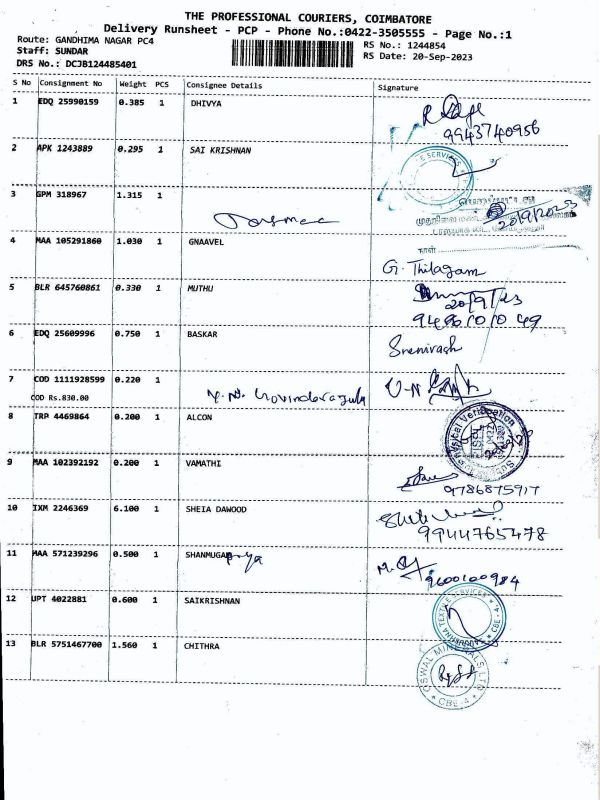 THE PROFESSIONAL COURIERS, COIMBATORE
Delivery Runsheet - PCP - Phone No.:0422-3505555 - Page No.:1
Route: GANDHIMA NAGAR PC4
RS No.: 1244854
Staff: SUNDAR
RS Date: 20-Sep-2023
DRS No.: DCJB124485401
S No Consignment No Weight PCS Consignee Details Signature
1 EDQ 25990159 0.385 1 DHIVYA
9943740956
2 APK 1243889 0.295 1 SAI KRISHNAN
E SERVICES
3 GPM 318967 1.315 1
20/9/2023
4 MAA 105291860 1.030 1 GNAAVEL
G. Thilagam
5 BLR 645760861 0.330 1 MUTHU
20/9/23
9486101049
6 EDQ 25609996 0.750 1 BASKAR
Srenivash
7 COD 1111928599 0.220 1
COD Rs.830.00
Govindarajula
8 TRP 4469864 0.200 1 ALCON
9 MAA 102392192 0.200 1 VAMATHI
9786875917
10 IXM 2246369 6.100 1 SHEIA DAWOOD
9944765478
11 MAA 571239296 0.500 1 SHANMUGA priya
9600100984
12 UPT 4022881 0.600 1 SAIKRISHNAN
TEXTILE SERVICES CBE-4
13 BLR 5751467700 1.560 1 CHITHRA
OSWAL MINERALS LTD CBE-4